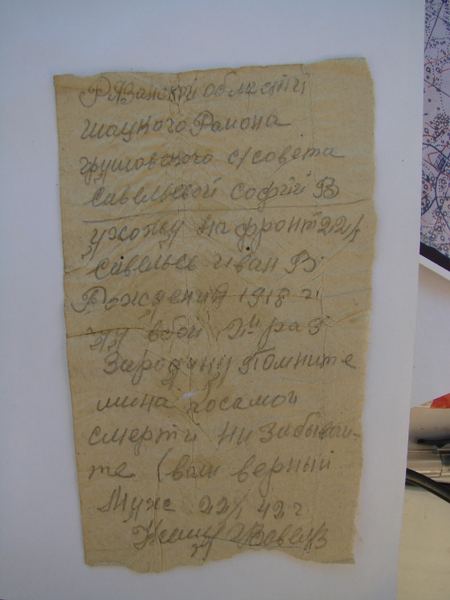 Рязанской области
шацкого Района
грушовского с/совета
Савельевой Софий В
ухожу на фронт 22/
Савельев Иван В
Рождения 1918 г.
иду вбой 2й раз
Зародину Помните
меня досамой
смерти ни Забывай-
те (ваш верный
Муж 22/ 42 г
Савелев